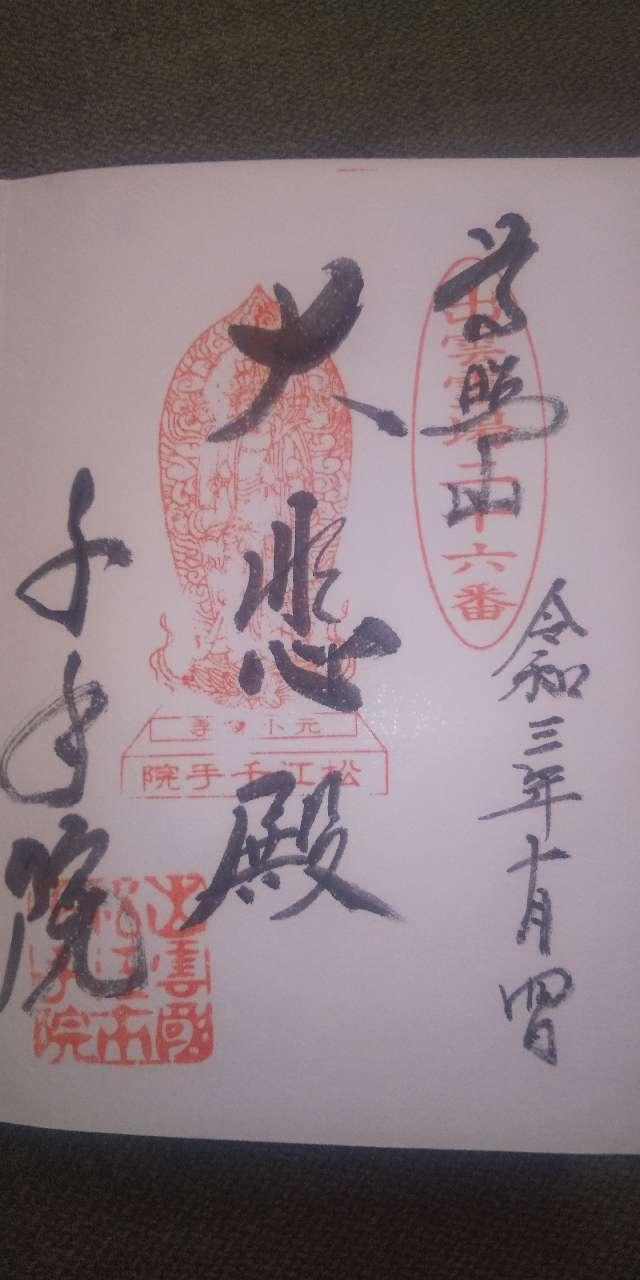 尊照山
出雲霊場二十六番
令和三年十月四日
大悲殿
松江千手院
千手院
出雲國
松江市
千手院